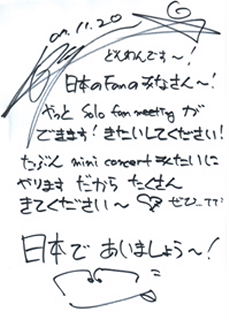 07.11.20
どんわんです〜!
日本のFanのみなさん〜!
やっと Solo fan meeting が
できます! きたいしてください!
たぶん mini concert みたいに
やります だから たくさん
きてください〜 ぜひ...
日本で あいましょう〜!